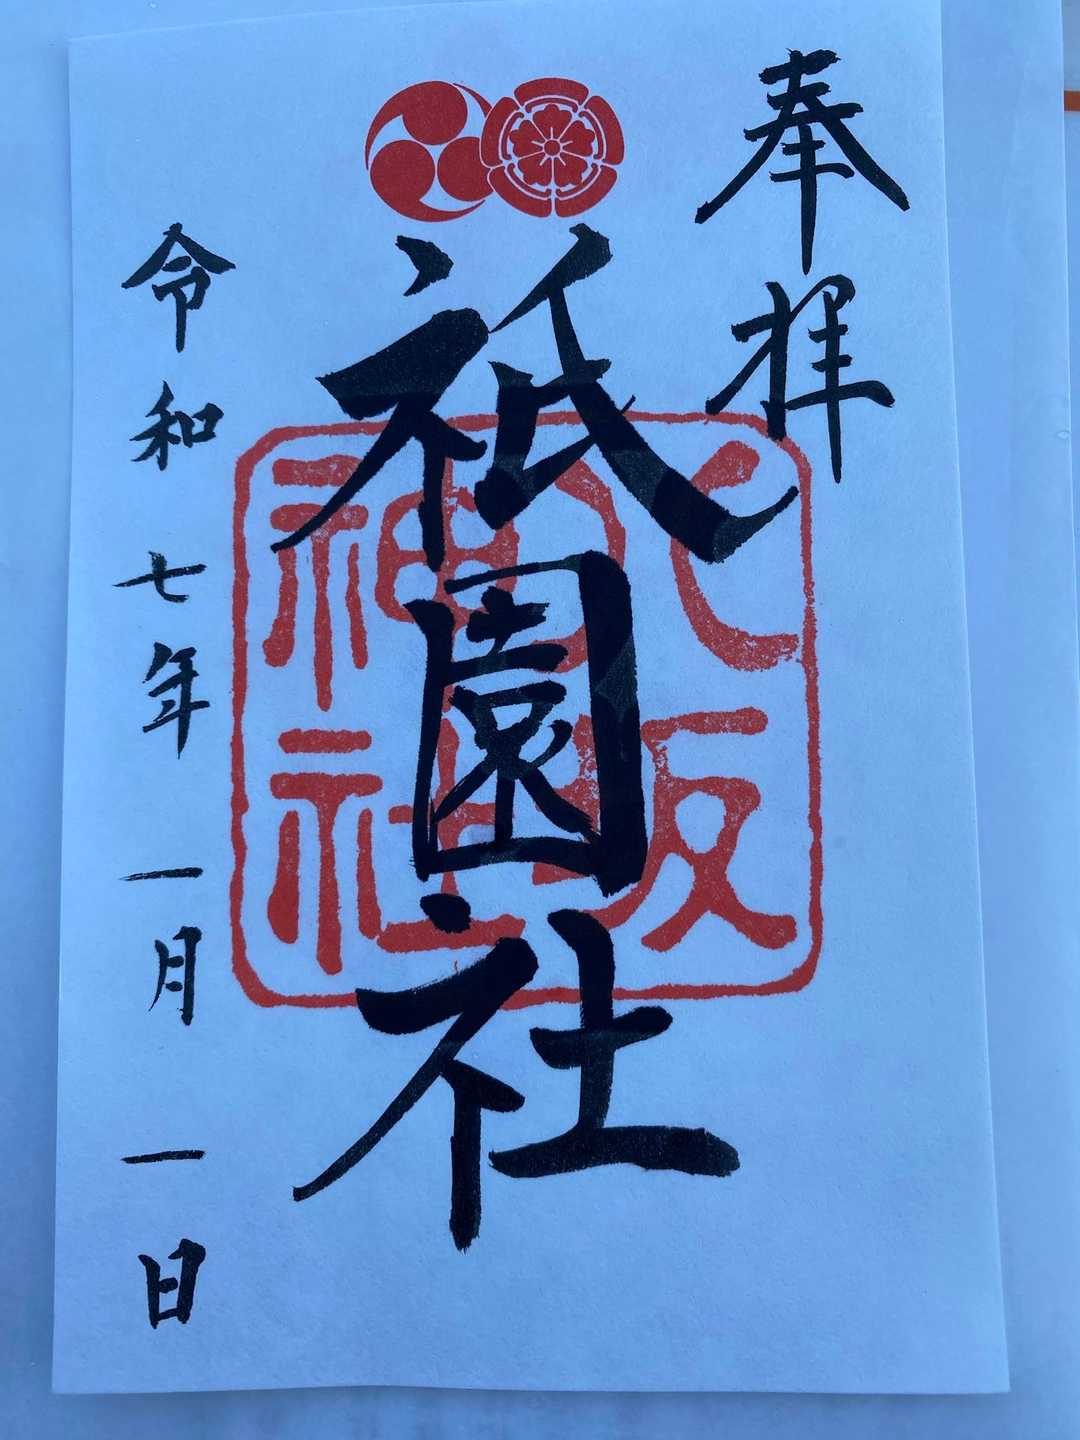 奉拝
祇園社
八坂
神社
令和七年一月一日